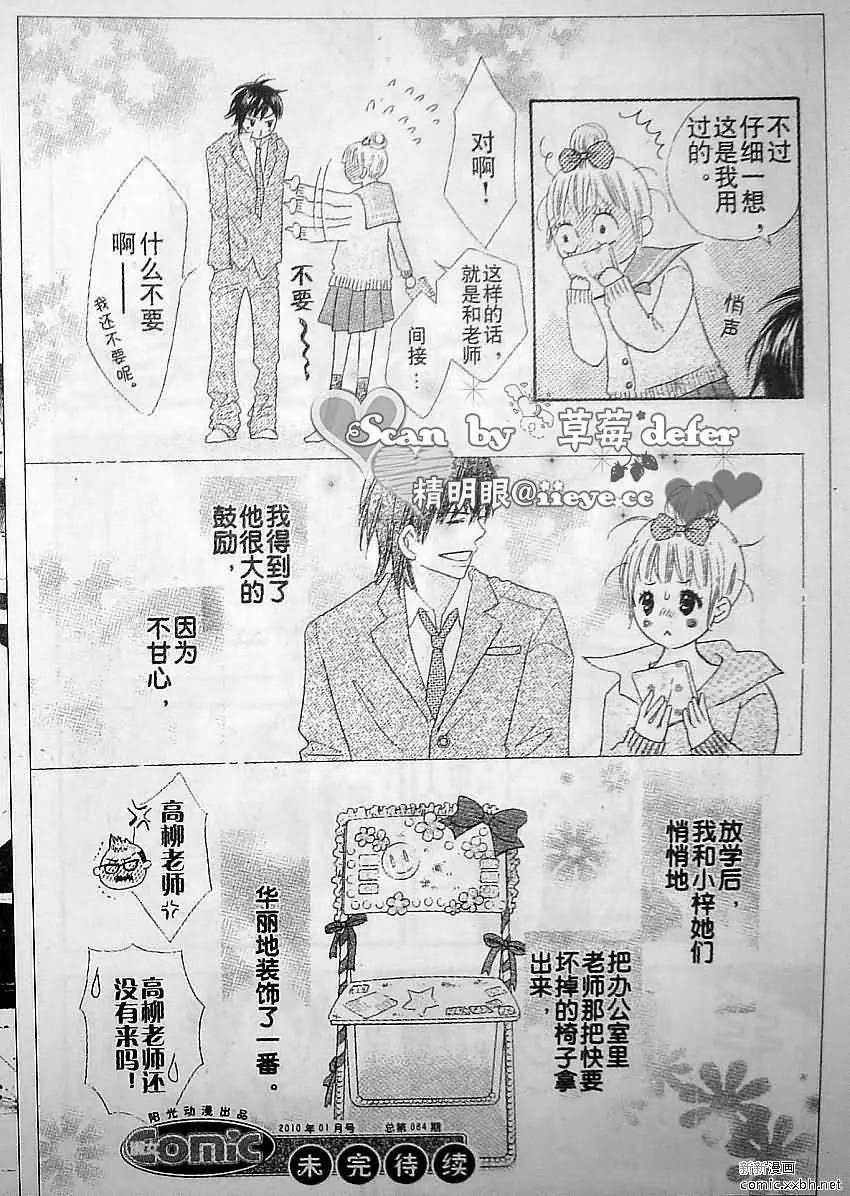 不过
仔细一想，
这是我用
过的。
悄声
对啊！
这样的话，
就是和老师
间接…
不要
什么不要
啊——
我还不要呢。
Scan by 草莓 defer
精明眼@iieye.cc
我得到了
他很大的
鼓励，
因为
不甘心，
放学后，
我和小梓她们
悄悄地
把办公室里
老师那把快要
坏掉的椅子拿
出来，
华丽地装饰了一番。
高柳老师
高柳老师还
没有来吗！
阳光动漫出品
2010年01月号 总第064期
Comic
未完待续
新新漫画
comic.xxbh.net